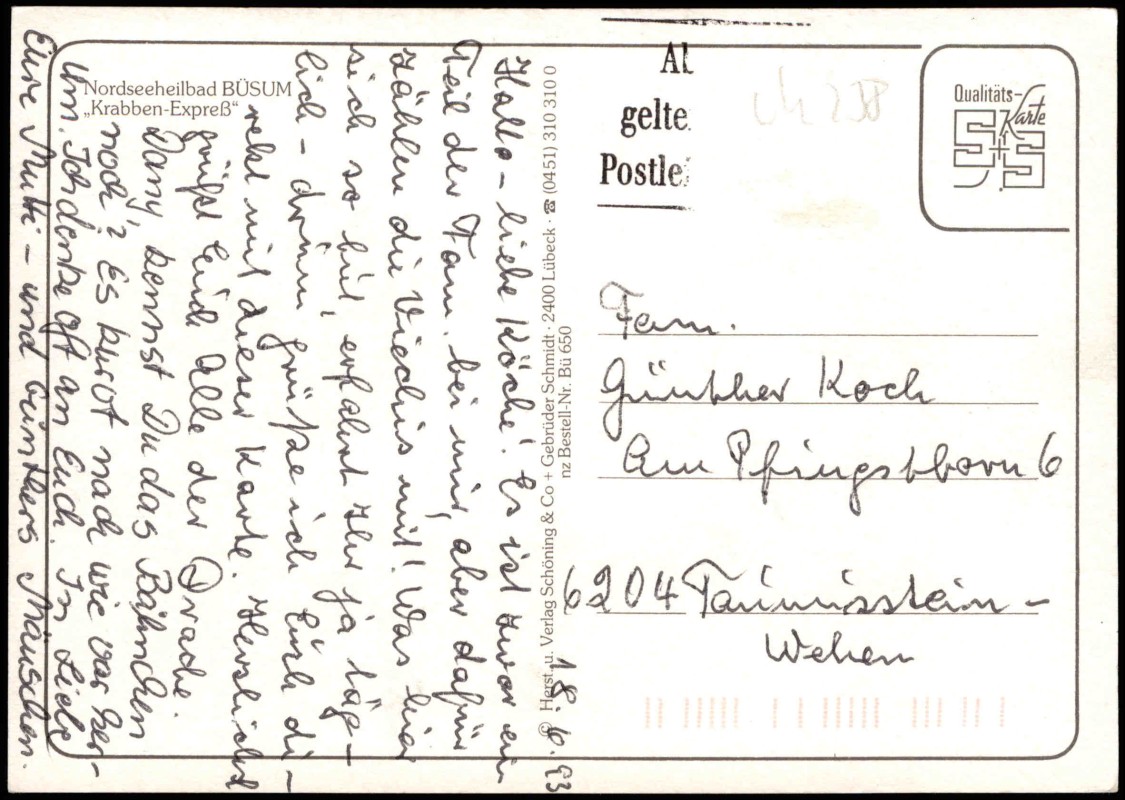 Nordseeheilbad BÜSUM
„Krabben-Expreß“
18.6.93
Hallo – liebe Köche! Es ist zwar ein
Teil der Fam. bei mir, aber dafür
zählen die Viechis mit! Was hier
sich so tut, erfahrt Ihr ja täg-
lich – drum grüße ich Euch di-
rekt mit dieser Karte. Herzlichst
grüßt Euch Alle der Drache.
Dany, kennst Du das Bähnchen
noch? Es kurvt nach wie vor her-
um. Ich denke oft an Euch. In Liebe
Eure Mutti – und Günthers Mäuschen.
© Herst. u. Verlag Schöning & Co + Gebrüder Schmidt · 2400 Lübeck · ☎ (0451) 310 310 0
nz Bestell-Nr. Bü 650
gelte
Postle
Qualitäts-
Karte
S+S
Fam.
Günther Koch
Am Pfingstborn 6
6204 Taunusstein –
Wehen